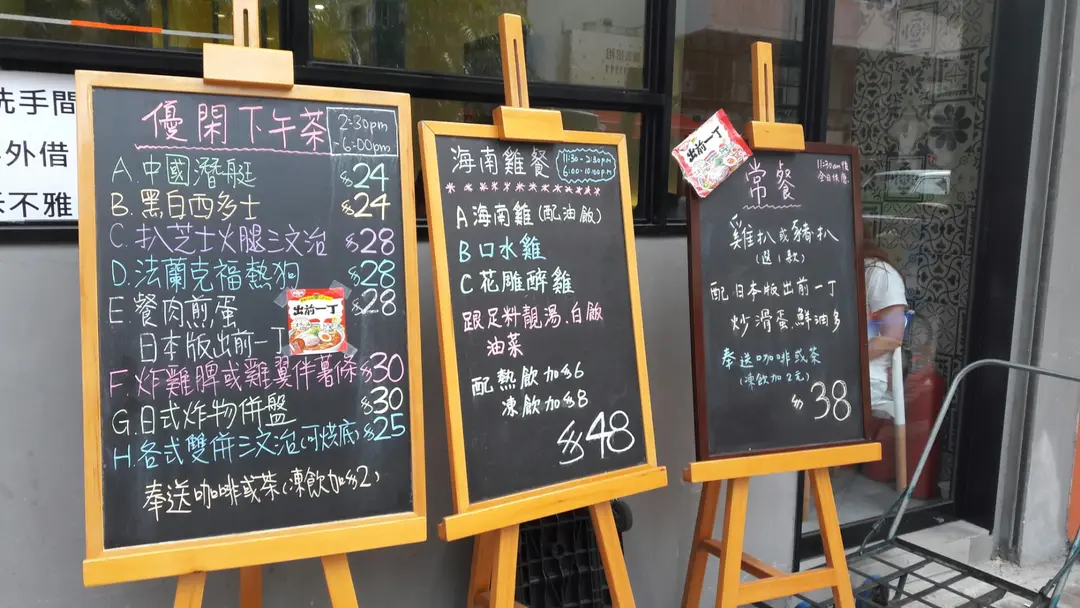 洗手間
外借
不雅
優閑下午茶
2:30pm
-6:00pm
A.中國潛艇 $24
B.黑白西多士 $24
C.扒芝士火腿三文治 $28
D.法蘭克福熱狗 $28
E.餐肉煎蛋 $28
日本版出前一丁
出前一丁
F.炸雞髀或雞翼伴薯條 $30
G.日式炸物併盤 $30
H.各式雙併三文治(可烘底) $25
奉送咖啡或茶(凍飲加$2)
海南雞餐
11:30-2:30pm
6:00-10:00pm
A海南雞(配油飯)
B口水雞
C花雕醉雞
跟足料靚湯、白飯
油菜
配熱飲加$6
凍飲加$8
$48
出前一丁
常餐
11:30am後
全日供應
雞扒或豬扒
(選1款)
配日本版出前一丁
炒滑蛋、鮮油多
奉送咖啡或茶
(凍飲加2元)
$38